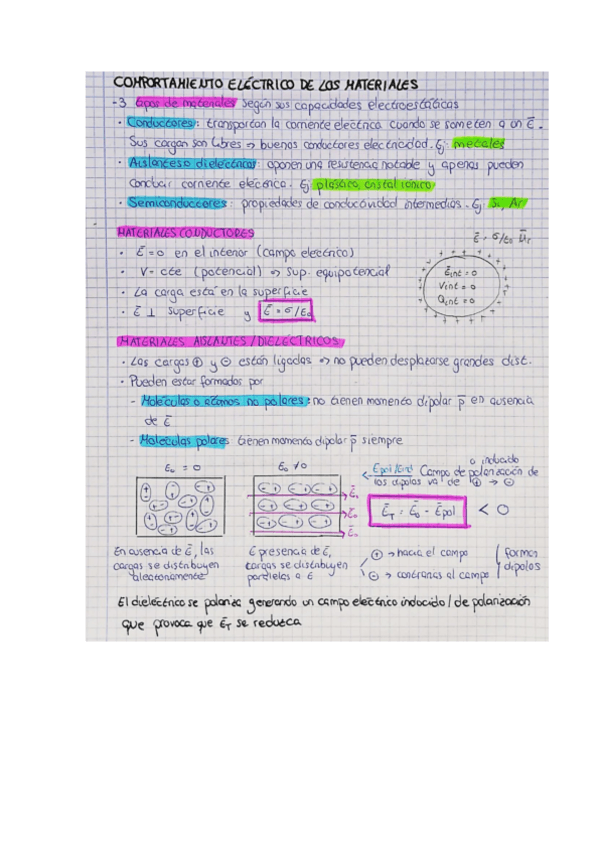 COMPORTAMIENTO ELÉCTRICO DE LOS MATERIALES
- 3 tipos de materiales según sus capacidades electroestáticas
· Conductores: transportan la corriente eléctrica cuando se someten a un E̅.
Sus cargan son libres ⇒ buenos conductores electricidad. Ej: metales
· Aislantes o dieléctricos: oponen una resistencia notable y apenas pueden
conducir corriente eléctrica. Ej: plástico, cristal iónico
· Semiconductores: propiedades de conductividad intermedios. Ej: Si, Ar
MATERIALES CONDUCTORES
E̅ = σ/ε₀ u̅r
· E̅ = 0 en el interior (campo electrico)
· V = cte (potencial) ⇒ Sup. equipotencial
· La carga está en la superficie
· E̅ ⊥ superficie y E̅ = σ/ε₀
E̅int = 0
Vint = 0
Qint = 0
MATERIALES AISLANTES / DIELÉCTRICOS
· Las cargas ⊕ y ⊖ están ligadas ⇒ no pueden desplazarse grandes dist.
· Pueden estar formados por
- Moléculas o átomos no polares: no tienen momento dipolar p̅ en ausencia
de E̅
- Moléculas polares tienen momento dipolar p̅ siempre
E₀ = 0
E₀ ≠ 0
E̅₀
E̅₀
E̅₀
o inducido
Epol/Eind Campo de polarización de
los dipolos va de ⊕ → ⊖
E̅T = E̅₀ - E̅pol < 0
En ausencia de E̅, las
cargas se distribuyen
aleatoriamente
E presencia de E̅,
cargas se distribuyen
paralelas a E̅
⊕ → hacia el campo
⊖ → contrarias al campo
forman
dipolos
El dieléctrico se polariza generando un campo eléctrico inducido / de polarización
que provoca que E̅T se reduzca